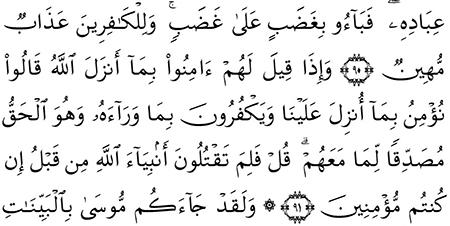 عِبَادِهِۦۖ فَبَآءُو بِغَضَبٍ عَلَىٰ غَضَبٍۚ وَلِلْكَـٰفِرِينَ عَذَابٌ
مُّهِينٌ ﴿٩٠﴾ وَإِذَا قِيلَ لَهُمْ ءَامِنُوا۟ بِمَآ أَنزَلَ ٱللَّهُ قَالُوا۟
نُؤْمِنُ بِمَآ أُنزِلَ عَلَيْنَا وَيَكْفُرُونَ بِمَا وَرَآءَهُۥ وَهُوَ ٱلْحَقُّ
مُصَدِّقًا لِّمَا مَعَهُمْۗ قُلْ فَلِمَ تَقْتُلُونَ أَنۢبِيَآءَ ٱللَّهِ مِن قَبْلُ إِن
كُنتُم مُّؤْمِنِينَ ﴿٩١﴾ ۞ وَلَقَدْ جَآءَكُم مُّوسَىٰ بِٱلْبَيِّنَـٰتِ